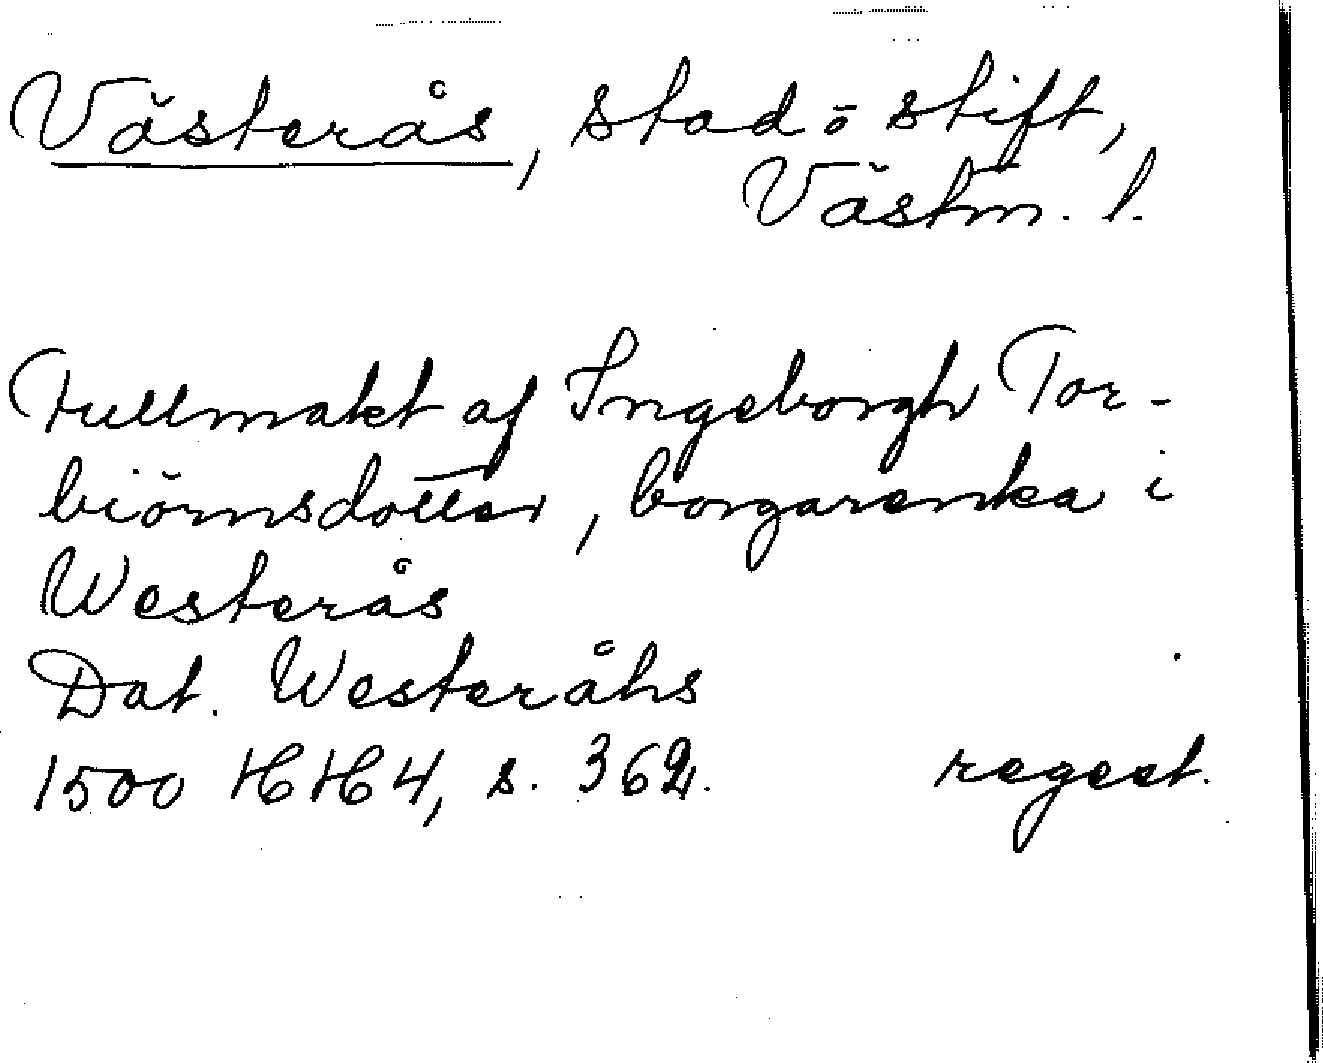 Västerås, stad o stift,
Västm. l.
Fullmakt af Ingeborgh Tor-
biörnsdotter, borgarenka i
Westerås
Dat. Westeråhs
1500 HH 4, s. 362. regest.